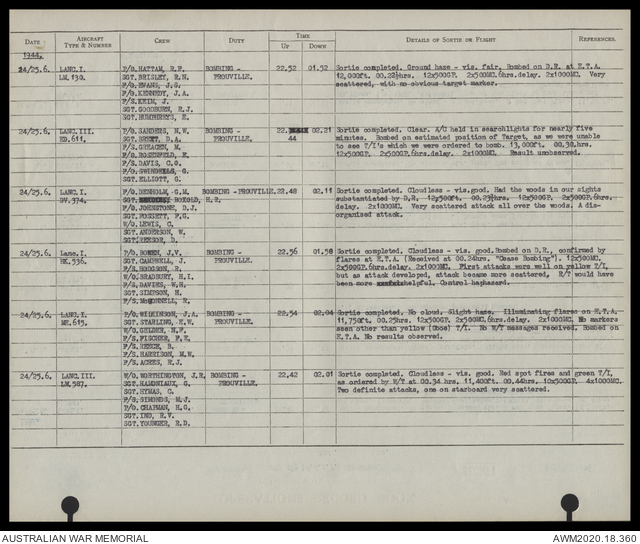 DATE AIRCRAFT TYPE & NUMBER CREW DUTY TIME UP DOWN DETAILS OF SORTIE OR FLIGHT REFERENCES.
1944.
24/25.6. LANC.I. F/O. HATTAM, R.F. BOMBING - 22.52 01.52 Sortie completed. Ground haze - vis. fair, Bombed on D.R. at E.T.A.
LM.130. SGT. BRISLEY, R.N. PROUVILLE. 12,000ft. 00.22½hrs. 12x500GP. 2x500MC.6hrs.delay. 2x1000MC. Very
F/O. EVANS, J.G. scattered, with no obvious target marker.
F/O. KENNEDY, J.A.
F/S. KEIM, J.
SGT. GOODBURN, R.J.
SGT. HUMPHERYS, E.
24/25.6. LANC.III. F/O. SANDERS, N.W. BOMBING - 22. 02.21 Sortie completed. Clear. A/C held in searchlights for nearly five
ED.611. SGT. BRETT, D.A. PROUVILLE. 44 minutes. Bombed on estimated position of Target, as we were unable
F/S. GREACEN, M. to see T/I's which we were ordered to bomb. 13,000ft. 00.30.hrs.
F/O. ROSENFELD, E. 12x500GP. 2x500GP.6hrs.delay. 2x1000MC. Result unobserved.
F/S. DAVIS, C.O.
F/O. SWINDELLS, G.
SGT. ELLIOTT, G.
24/25.6. LANC.I. F/O. DENHOLM, G.M. BOMBING - PROUVILLE. 22.48 02.11 Sortie completed. Cloudless - vis.good. Had the woods in our sights
DV.374. SGT. BOXOLD, H.R. substantiated by D.R. 12,500ft. 00.23½hrs. 12x500GP. 2x500GP.6hrs.
F/O. JOHNSTONE, D.J. delay. 2x1000MC. Very scattered attack all over the woods. A dis-
SGT. FOSSETT, F.G. organised attack.
W/O. LEWIS, C.
SGT. ANDERSON, W.
SGT. REESOR, D.
24/25.6. Lanc.I. P/O. BOWEN, J.V. BOMBING - 22.56 01.58 Sortie completed. Cloudless - vis. good. Bombed on D.R., confirmed by
HK.536. SGT. CAMPBELL, J. PROUVILLE. flares at E.T.A. (Received at 00.24hrs. "Cease Bombing"). 12x500MC.
F/S. HODGSON, R. 2x500GP.6hrs.delay. 2x1000MC. First attacks were well on yellow T/I,
W/O. BRADBURY, H.I. but as attack developed, attack became more scattered, R/T would have
F/S. DAVIES, W.H. been more helpful. Control haphazard.
SGT. SIMPSON, H.
F/S. McDONNELL, R.
24/25.6. LANC.I. P/O. WILKINSON, J.A. BOMBING - 22.54 02.04 Sortie completed. No cloud. Slight haze. Illuminating flares on E.T.A.
ME.615. SGT. STARLING, K.W. PROUVILLE. 11,750ft. 00.25½hrs. 12x500MC. 2x500GP.6hrs.delay. 2x1000MC. No markers
W/O. GELDER, N.F. seen other than yellow (Oboe) T/I. No W/T messages received. Bombed on
F/S. FISCHER, F.E. E.T.A. No results observed.
F/S. REECE, B.
F/S. HARRISON, M.W.
F/S. ACRES, H.J.
24/25.6. LANC.III. W/O. WORTHINGTON, J.R. BOMBING - 22.42 02.01 Sortie completed. Cloudless - vis. good. Red spot fires and green T/I,
LM.587. SGT. HAMONIAUX, G. PROUVILLE. as ordered by W/T at 00.34 hrs. 11,400ft. 00.44hrs. 10x500GP. 4x1000MC.
SGT. HYMAS, C. Two definite attacks, one on starboard very scattered.
F/S. SIMONDS, M.J.
P/O. CHAPMAN, H.G.
SGT. ING, R.V.
SGT. YOUNGER, R.D.
AUSTRALIAN WAR MEMORIAL AWM2020.18.360